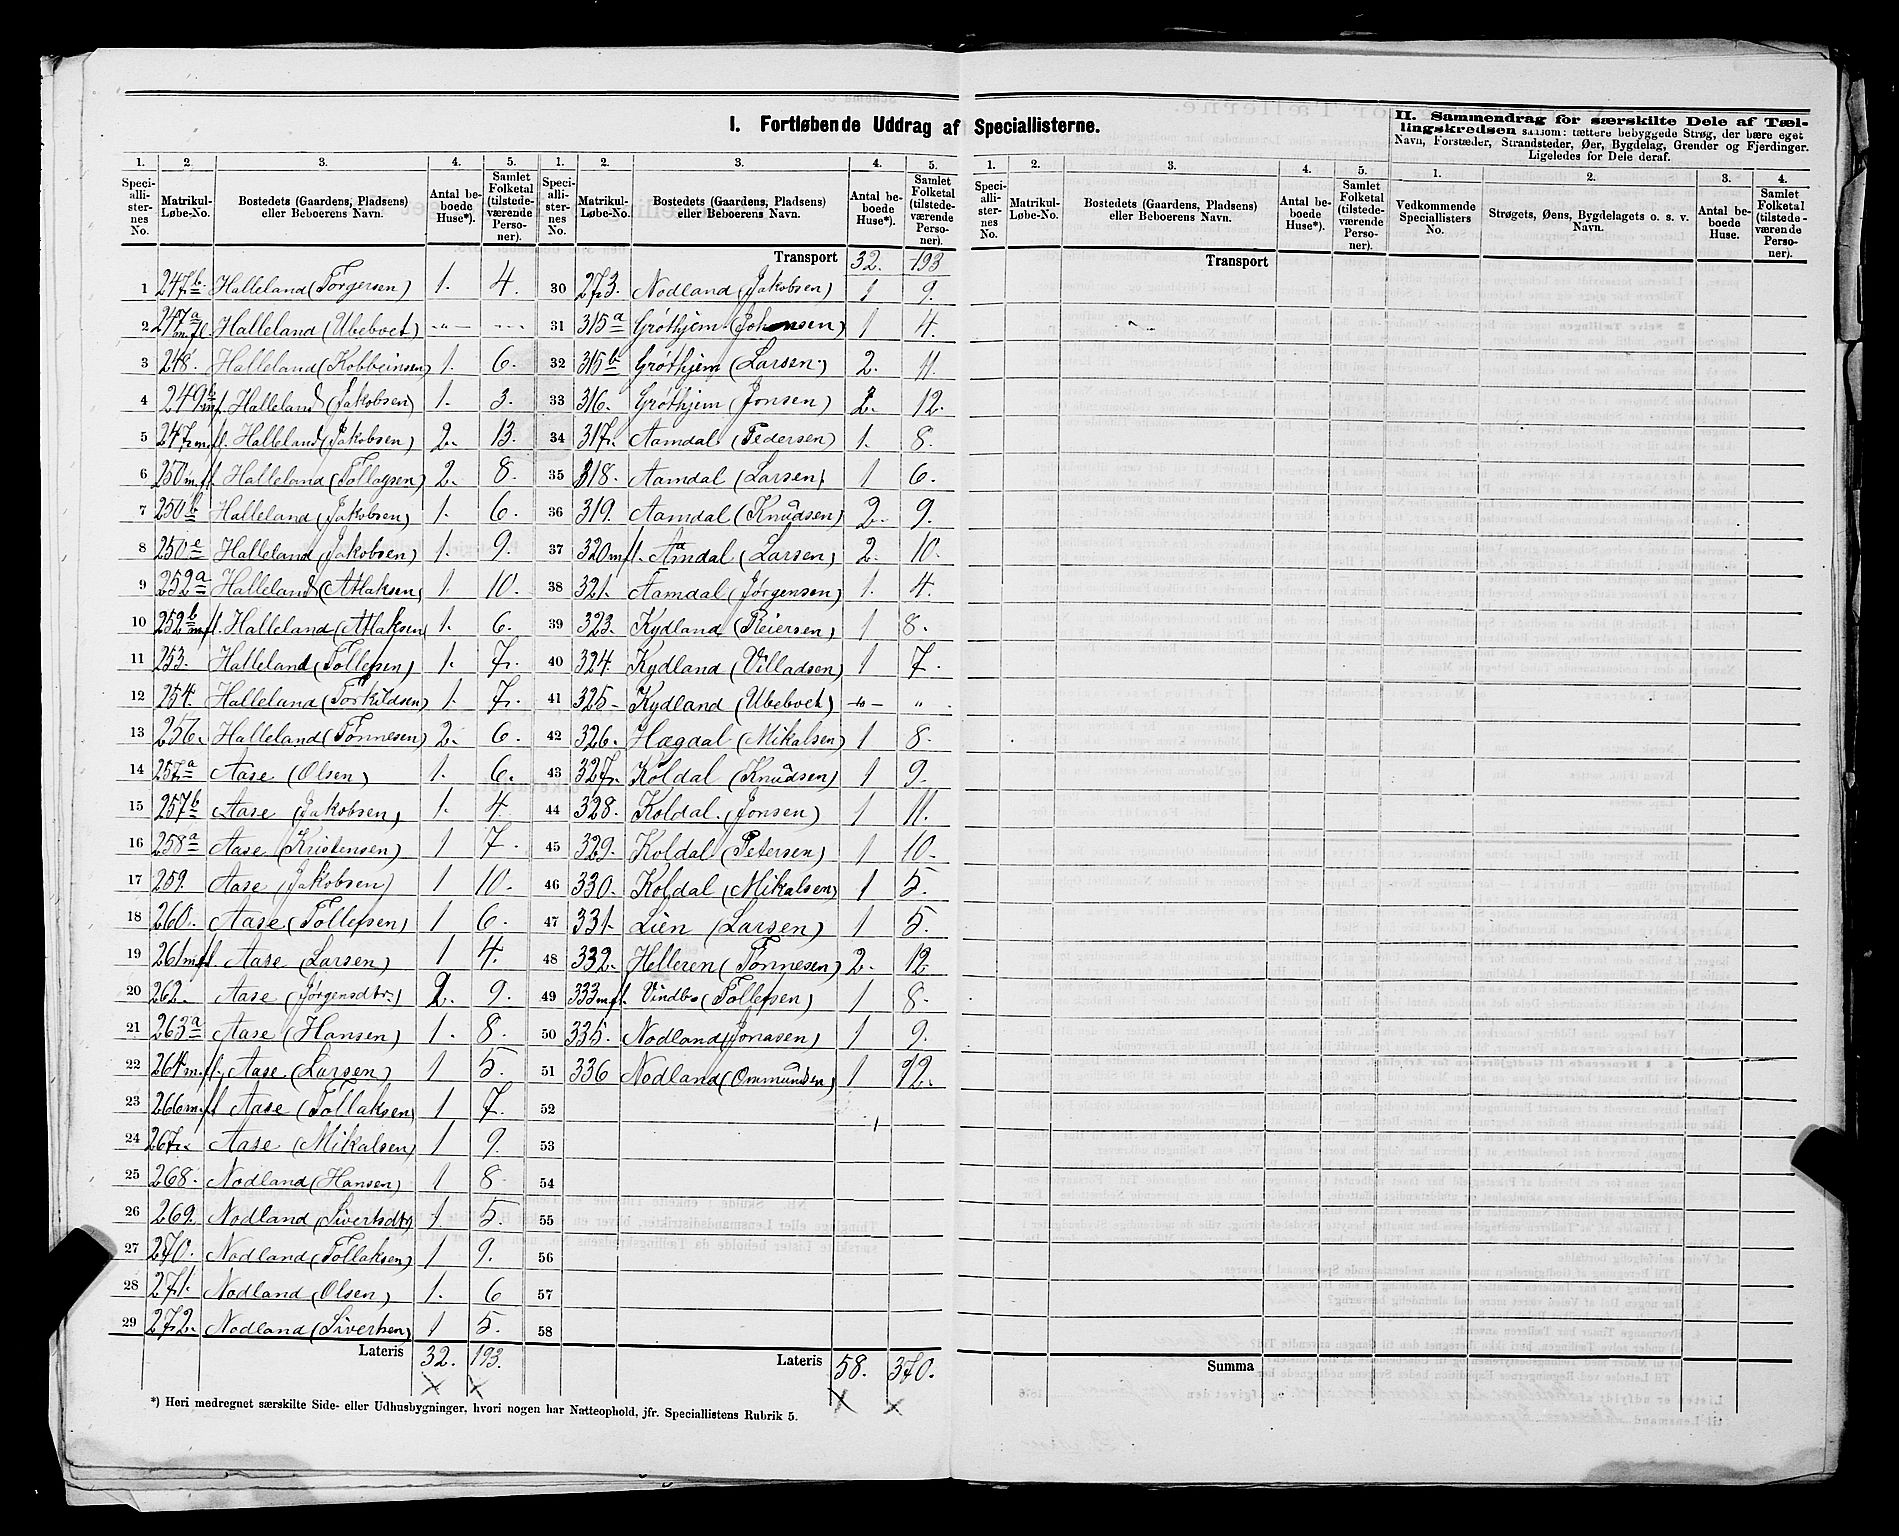 I. Fortløbende Uddrag af Speciallisterne.
II. Sammendrag for særskilte Dele af Tæl-
lingskredsen saasom: tættere bebyggede Strøg, der bære eget
Navn, Forstæder, Strandsteder, Øer, Bygdelag, Grender og Fjerdinger.
Ligeledes for Dele deraf.
1. 2. 3. 4. 5. 1. 2. 3. 4. 5.
Speci-alli-ster-nes No. Matrikul-Løbe-No. Bostedets (Gaardens, Pladsens) eller Beboerens Navn. Antal be-boede Huse*). Samlet Folketal (tilstede-værende Perso-ner). Speci-alli-ster-nes No. Matrikul-Løbe-No. Bostedets (Gaardens, Pladsens) eller Beboerens Navn. Antal be-boede Huse*). Samlet Folketal (tilstede-værende Perso-ner).
Transport 32. 193
1 247b. Halleland (Torgersen) 1. 4. 30 273. Nodland (Jakobsen) 1 9.
2 247a m.fl. Halleland (Ubeboet) -"- -"- 31 315a Gröthjem (Johansen) 1 4.
3 248. Halleland (Kobbeinsen) 1. 6. 32 315b Gröthjem (Larsen) 2. 11.
4 249b m.fl. Halleland (Jakobsen) 1. 3. 33 316. Gröthjem (Jonsen) 2. 12.
5 247 m.fl. Halleland (Jakobsen) 2. 13. 34 317. Aamdal (Pedersen) 1. 8.
6 250 m.fl. Halleland (Tollagsen) 2. 8. 35 318. Aamdal (Larsen) 1 6.
7 250b Halleland (Jakobsen) 1. 6. 36 319. Aamdal (Knudsen) 2. 9.
8 250c Halleland (Jakobsen) 1. 9. 37 320 m.fl. Aamdal (Larsen) 2. 10.
9 252a Halleland (Atlaksen) 1. 10. 38 321. Aamdal (Jørgensen) 1. 4.
10 252b m.fl. Halleland (Atlaksen) 1. 6. 39 323. Kydland (Reiersen) 1 8.
11 253. Halleland (Tollefsen) 1. 7. 40 324. Kydland (Villadsen) 1 7.
12 254. Halleland (Torkildsen) 1. 7. 41 325 Kydland (Ubeboet) -"- "
13 256. Halleland (Tønnesen) 2. 6. 42 326. Hægdal (Mikalsen) 1 8.
14 257a Aase (Olsen) 1. 6. 43 327. Koldal (Knudsen) 1 9.
15 257b Aase (Jakobsen) 1. 4. 44 328. Koldal (Jonsen) 1 11.
16 258a Aase (Kristensen) 1 7. 45 329. Koldal (Petersen) 1 10.
17 259. Aase (Jakobsen) 1 10. 46 330. Koldal (Mikalsen) 1 5.
18 260. Aase (Tollefsen) 1 6. 47 331. Lien (Larsen) 1 5.
19 261 m.fl. Aase (Larsen) 1 4. 48 332. Helleren (Tønnesen) 2. 12
20 262. Aase (Jørgensdtr.) 2. 9. 49 333 m.fl. Vindbo (Tollefsen) 1 8.
21 263a Aase (Hansen) 1. 8. 50 335. Nodland (Jonasen) 1 9.
22 264 m.fl. Aase (Larsen) 1 5. 51 336 Nodland (Ommundsen) 1 12.
23 266 m.fl. Aase (Tollaksen) 1 7. 52
24 267. Aase (Mikalsen) 1 9. 53
25 268. Nodland (Hansen) 1 8. 54
26 269. Nodland (Sivertsdtr) 1. 5. 55
27 270. Nodland (Tollaksen) 1 9. 56
28 271. Nodland (Olsen) 1. 6 57
29 272. Nodland (Sivertsen) 1 5. 58
Lateris 32. 193. Lateris 58. 370.
*) Heri medregnet særskilte Side- eller Udhusbygninger, hvori nogen har Natteophold, jfr. Speciallistens Rubrik 5.
1. 2. 3. 4. 5. 1. 2. 3. 4.
Speci-alli-ster-nes No. Matrikul-Løbe-No. Bostedets (Gaardens, Pladsens) eller Beboerens Navn. Antal be-boede Huse*). Samlet Folketal (tilstede-værende Perso-ner). Vedkommende Speciallisters No. Strøgets, Øens, Bygdelagets o. s. v. Navn. Antal be-boede Huse. Samlet Folketal (tilstede-værende Perso-ner).
Transport
Summa